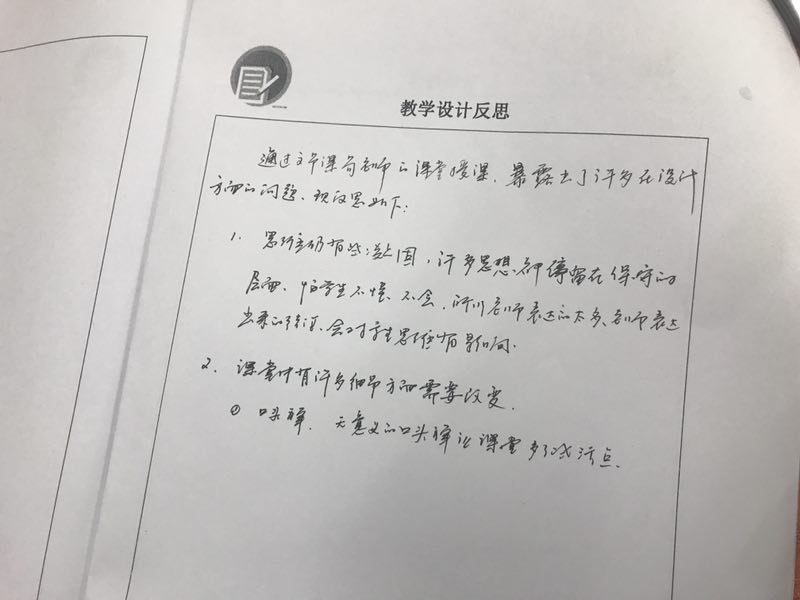 教学设计反思
通过文华课前老师的课堂授课,暴露出了许多在设计
方面的问题、现反思如下:
1. 思维方面仍有些顽固,许多思想都停留在保守的
层面、怕学生不懂、不会,所以老师表达的太多、老师表达
出来的,会对学生思维有影响.
2. 课堂中有许多细节方面需要改变.
① 口头禅.无意义的口头禅让课堂多了些污点.